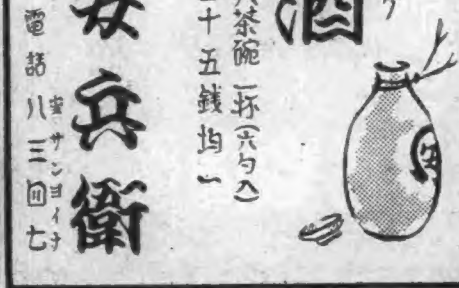 酒
茶碗一杯(六勺入)
十五銭均一
兵衛
電話八三四七
サンヨイナ